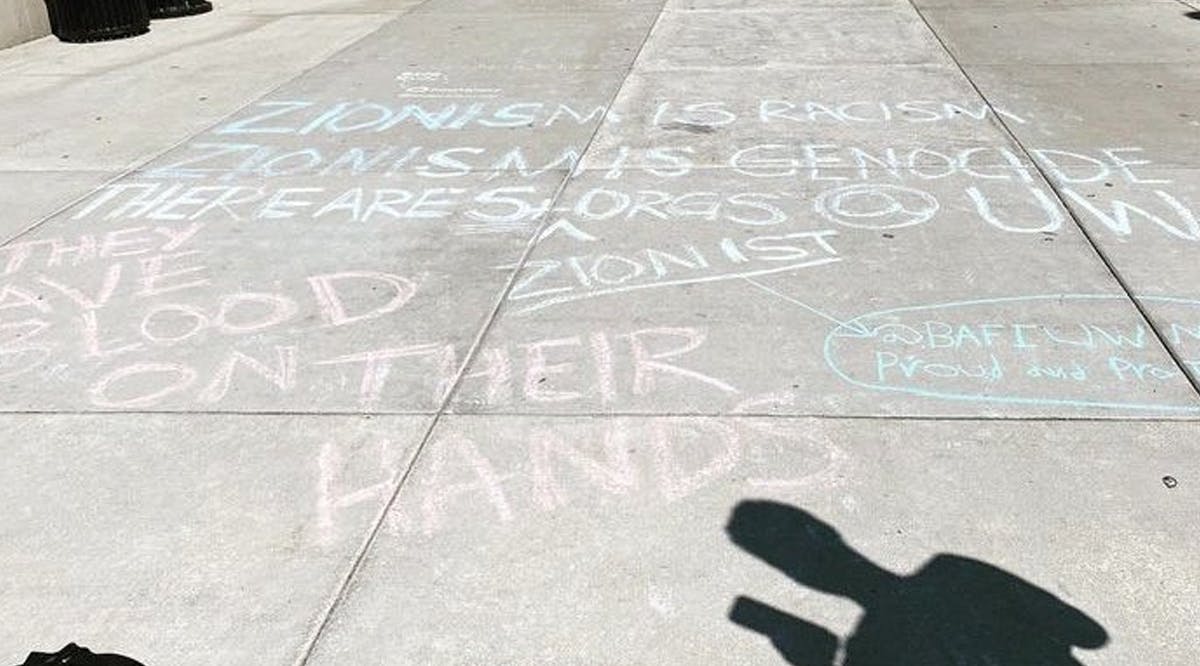 ZIONISM IS RACISM
ZIONISM IS GENOCIDE
THERE ARE 5 ORGS @ UW
^
ZIONIST
THEY
AVE
BLOOD
ON THEIR
HANDS
Proud and Pro